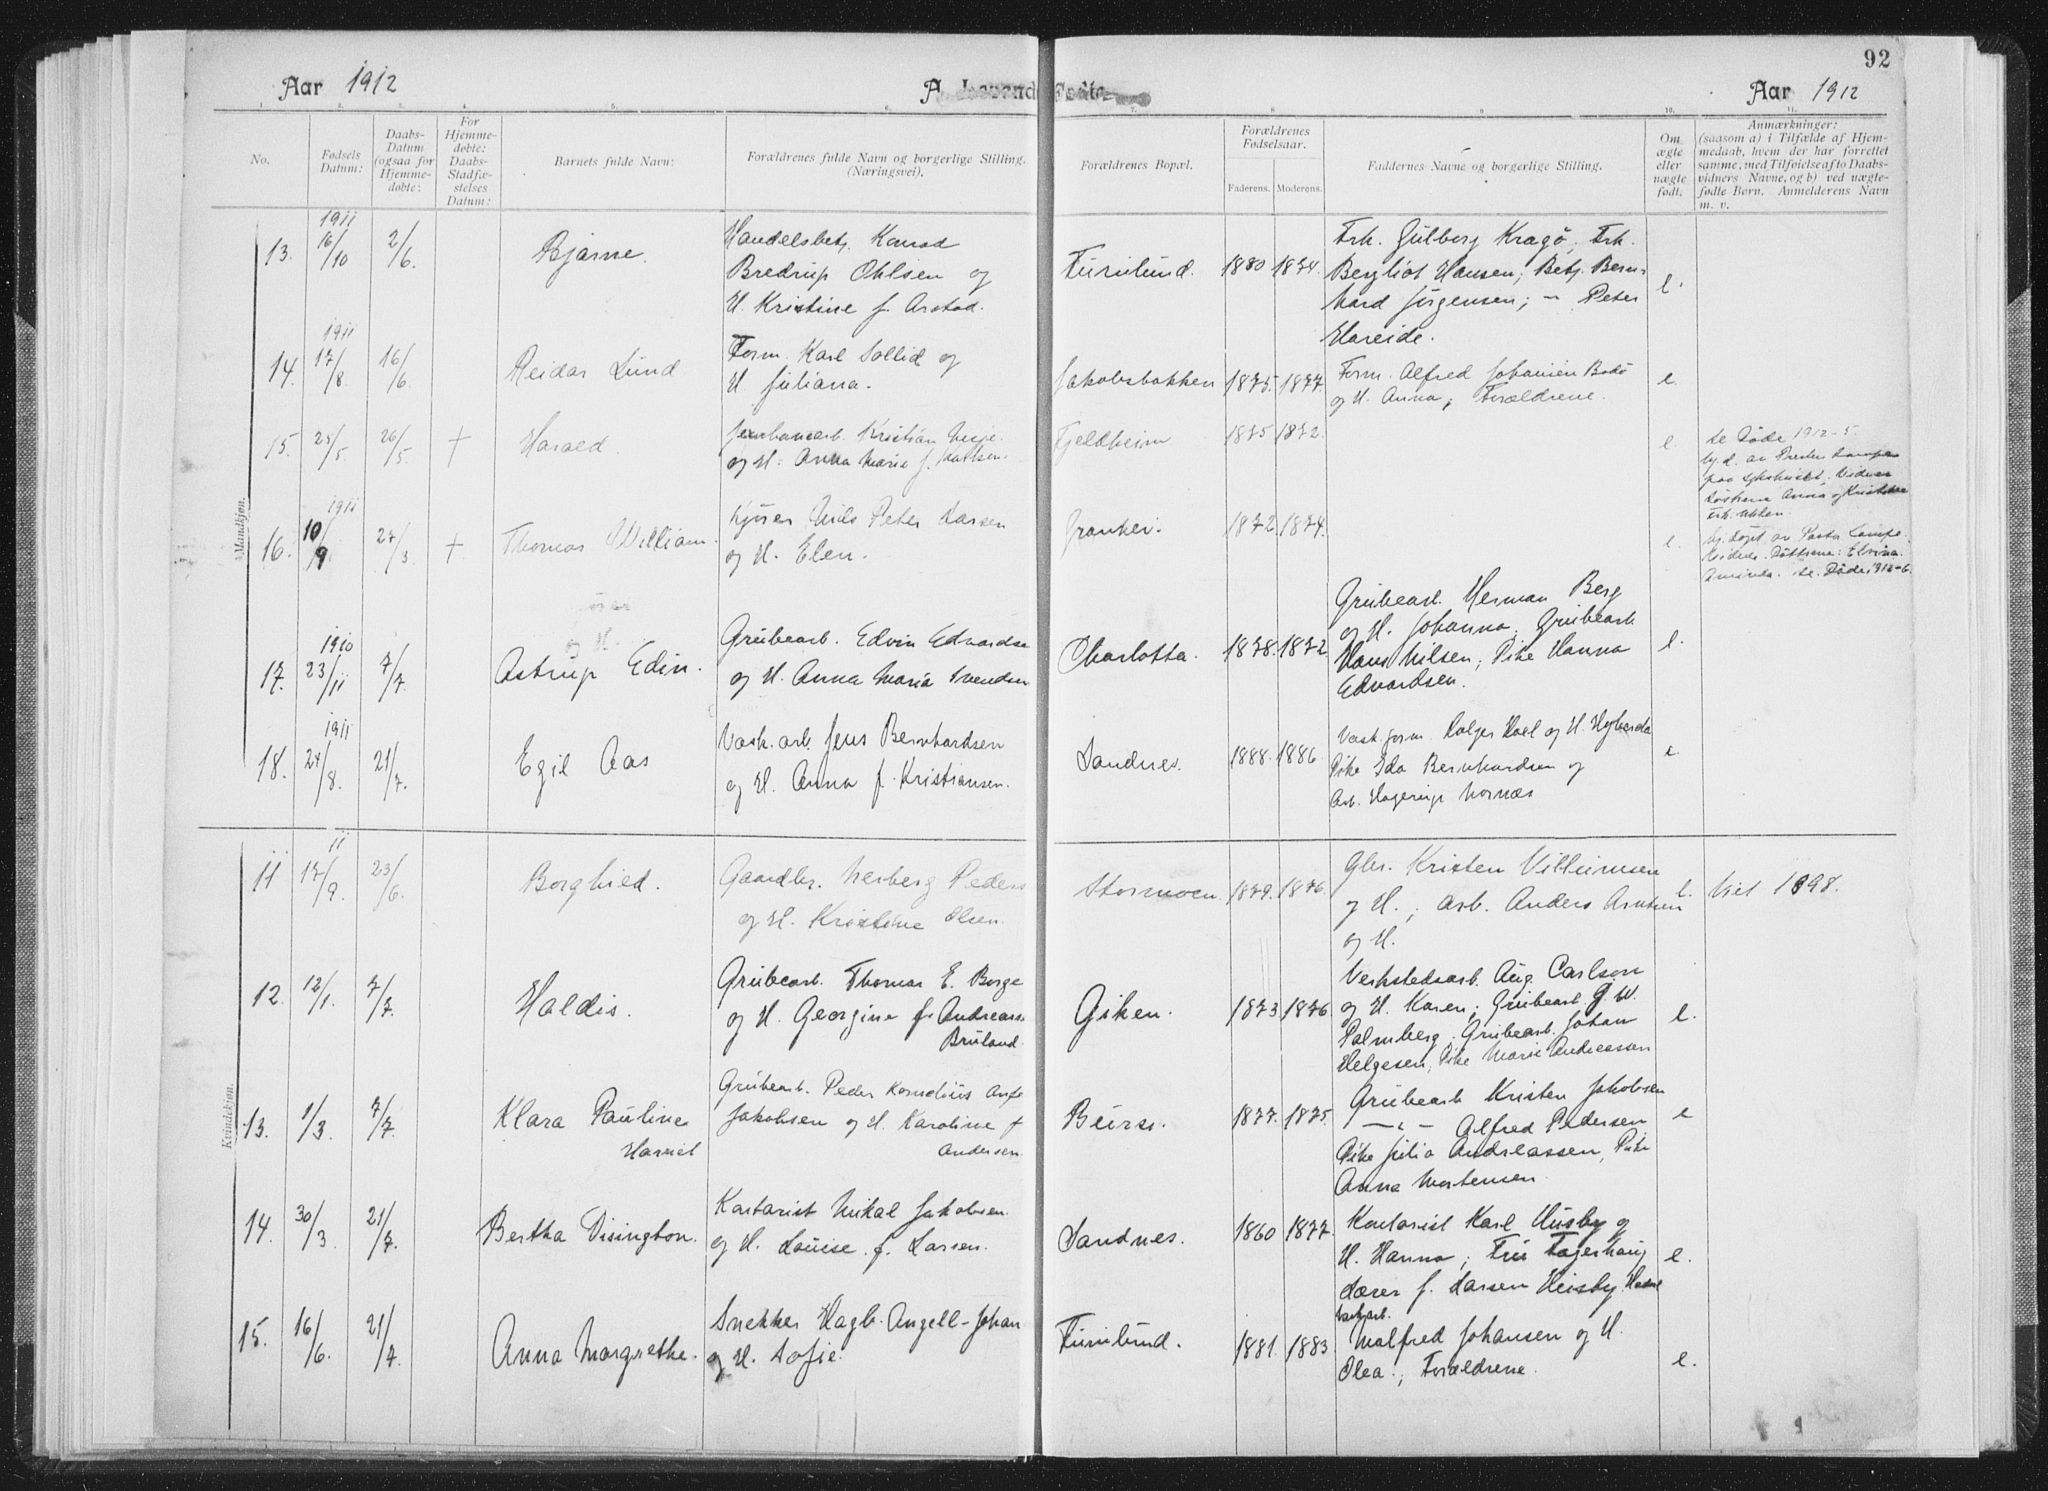 92
Aar 1912
A. Levende Fødte
Aar 1912
1. 2. 3. 4. 5. 6. 7. 8. 9. 10. 11.
No.
Fødsels Datum:
Daabs-Datum (ogsaa for Hjemme-døbte:
For Hjemme-døbte: Daabs-Stadfæ-stelses Datum:
Barnets fulde Navn:
Forældrenes fulde Navn og borgerlige Stilling. (Næringsvei).
Forældrenes Bopæl.
Forældrenes Fødselsaar.
Faderens. Moderens.
Faddernes Navne og borgerlige Stilling.
Om ægte eller uægte født.
Anmærkninger:
(saasom a) i Tilfælde af Hjem-
medaab, hvem der har forrettet
samme, med Tilføielse af to Daabs-
vidners Navne, og b) ved uægte-
fødte Børn. Anmelderens Navn
m. v.
Mandkjøn.
13. 1911 16/10 2/6. Bjarne. Handelsbetj. Konrad
Bredrup Ohlsen og
H. Kristine f. Arstad.
Furulund. 1880 1874.
Frk. Gulborg Kragö; Frk.
Bergliot Hansen; Betj. Bern-
hard Jörgensen; - Peter
Hareide.
e.
14. 1911 17/8. 16/6. Reidar Lund Form. Karl Sollid og
H. Juliana.
Jakobsbakken 1875. 1877.
Form. Alfred Johansen Bodö
og H. Anna; Forældrene.
e.
15. 25/5 26/5. + Harald. Jernbanearb. Kristian
og H. Anna Marie f.
Fjeldheim 1875 1872.
e.
se Döde 1912-5.
hj.d. av Presten
paa Sykehuset; Vidner
Söstrene Anna og Kristine
16. 1911 10/9 27/3 + Thomas William. Kjörer Nils Peter Larsen
og H. Elen.
Granhei. 1872. 1874.
e.
hj. döpt av Pastor
Elvina
se Döde 1912-6.
17. 1910 23/11 7/7 Astrup Edin. Grubearb. Edvin Edvardse
og H. Anna Maria Svendsen
Charlotta. 1878. 1872
Grubearb. Herman Berg
og H. Johanna; Grubearb
Hans Nilsen; Pike Hanna
Edvardsen.
e.
18. 1911 24/8. 21/7. Egil Aas Vask.arb. Jens Bernhardsen
og H. Anna f. Kristiansen.
Sandnes. 1888. 1886
Vask.form. Holger Hoel og H.
Pike Ida Bernhardsen og
Arb. Hagerup Hornæs
e
Kvindekjøn.
11 11 17/9. 23/6. Borghild. Gaardbr. Nerberg Peders
og H. Kristine Olsen.
Stormoen. 1879. 1876.
Gbr. Kristen Villumsen
og H.; Arb. Anders Arntsen
og H.
e. Viet 1898.
12. 12/1. 7/7. Haldis. Grubearb. Thomas E. Borge
og H. Georgine f. Andreass
Bruland
Giken. 1873 1876
Verkstedsarb. Aug. Carlson
og H. Karen; Grubearb. G. W.
Palmberg. Grubearb. Johan
Helgesen, Pike Marie Andreassen
e.
13. 1/3. 7/7. Klara Pauline
Harriet
Grubearb. Peder Kornelius
Jakobsen og H. Karoline f
Andersen.
Beirs. 1877. 1875.
Grubearb Kristen Jakobsen
—„— Alfred Pedersen
Pike Julia Andreassen, Pike
Anna Mortensen.
e
14. 30/3. 21/7. Bertha Disington. Kontorist Mikal Jakobsen
og H. Louise f. Larsen.
Sandnes. 1860 1877.
Kontorist Karl Husby og
H. Hanna; Fru Fagerhaug
f. Larsen Husby
e.
15. 16/6. 21/7. Anna Margrethe. Snekker Hagb. Angell-Johan
og H. Sofie.
Furulund. 1881. 1883
Vaskarb.
Malfred Johansen og H.
Olea.; Forældrene.
e.